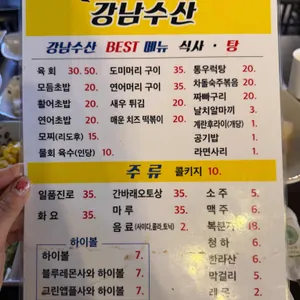 강남수산
강남수산 BEST 메뉴 식사 · 탕
육 회 30. 50. 도미머리 구이 35. 통우럭탕 20.
모듬초밥 20. 연어머리 구이 35. 차돌숙주볶음 20.
활어초밥 20. 새우 튀김 20. 짜빠구리 20.
연어초밥 20. 매운 치즈 떡볶이 20. 날치알마끼 3.
모찌(리도후) 15. 계란후라이(개당) 1.
물회 육수(인당) 10. 공기밥 1.
라면사리 1.
주 류 콜키지 10.
일품진로 35. 간바레오토상 35. 소 주 5.
화 요 35. 마 루 35. 맥 주 6.
음 료 (사이다,콜라,토닉) 2. 복분자
하이볼 청 하 6.
하이볼 7. 한라산 6.
블루레몬사와 하이볼 7. 막걸리 5.
그린애플사와 하이볼 7.